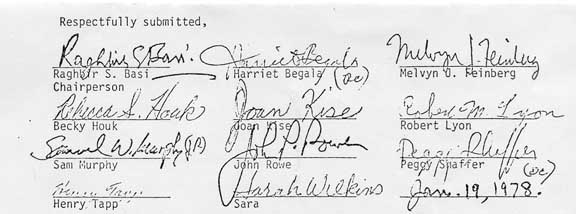 Respectfully submitted,
Raghbir S Basi. Harriet Begala (DC) Melvyn J. Feinberg
Raghbir S. Basi Harriet Begala Melvyn O. Feinberg
Chairperson
Rebecca S. Houk Joan Kise Robert M. Lyon
Becky Houk Joan Kise Robert Lyon
Samuel W. Murphy John P. Rowe Peggy Shaffer (DC)
Sam Murphy John Rowe Peggy Shaffer
Henry Tapp Sarah Wilkins Jan. 19, 1978.
Henry Tapp Sara